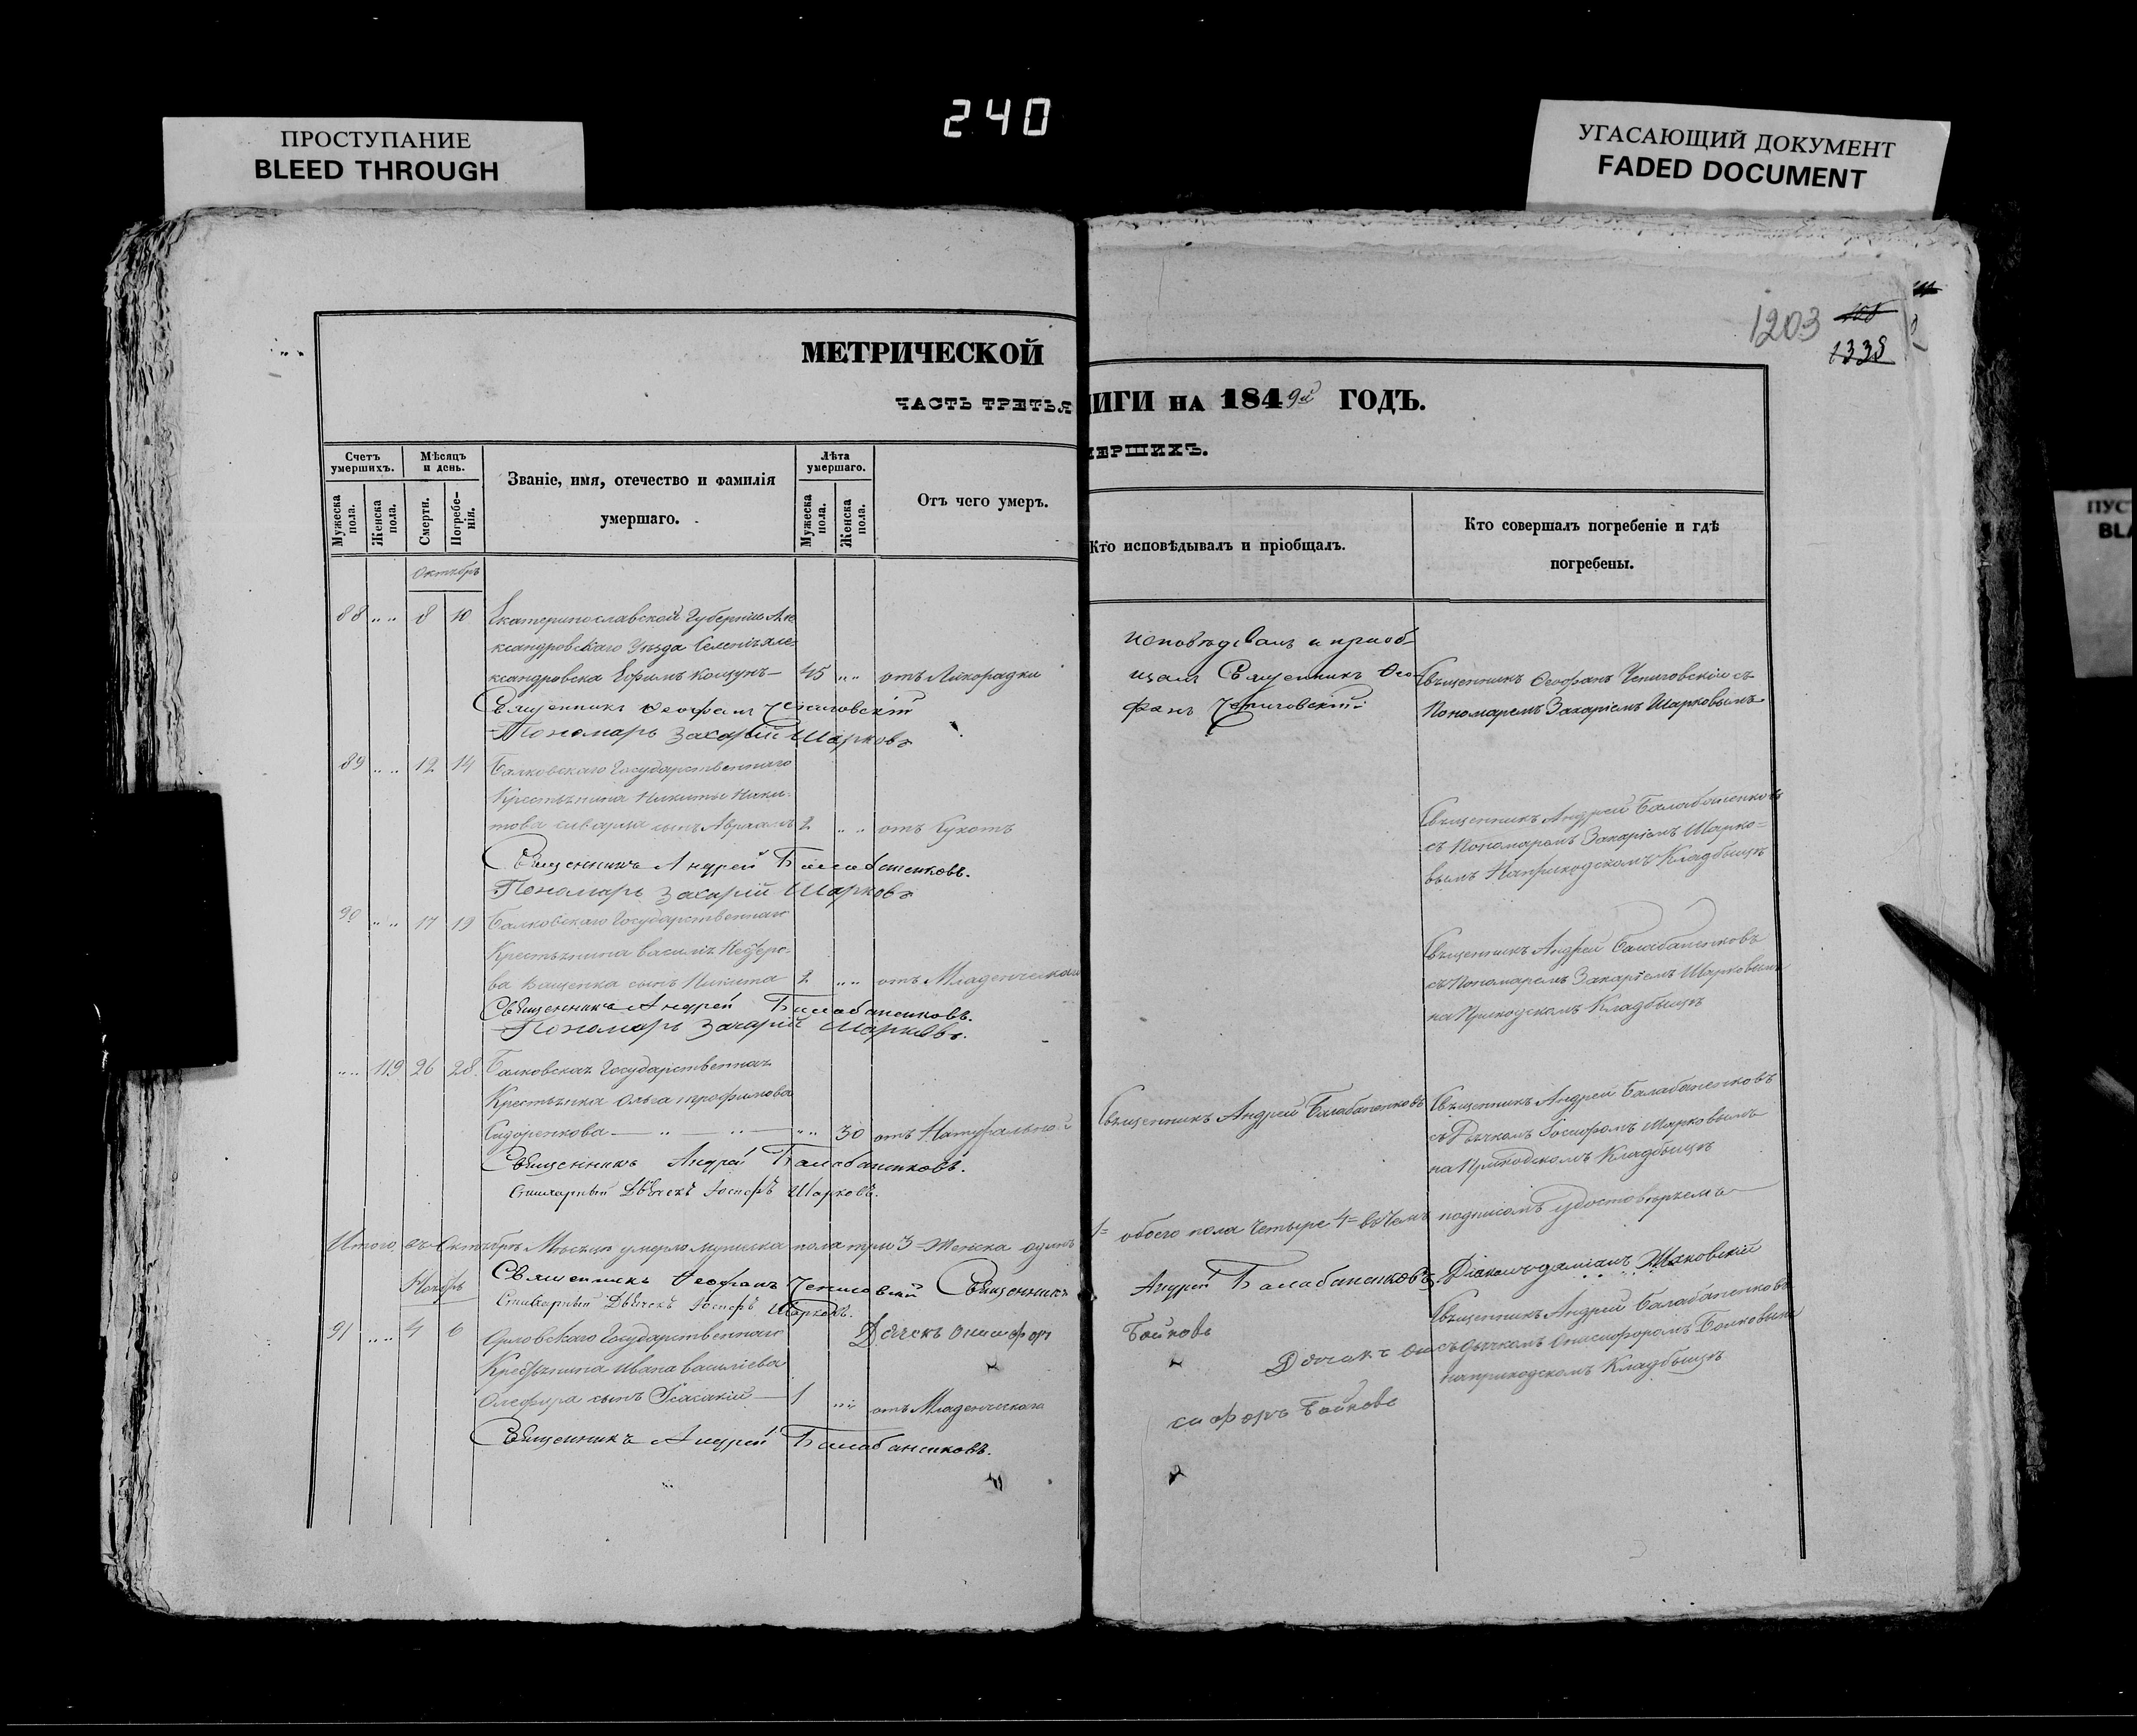 240
ПРОСТУПАНИЕ
BLEED THROUGH
УГАСАЮЩИЙ ДОКУМЕНТ
FADED DOCUMENT
ПУС
BLA
1203
1335
МЕТРИЧЕСКОЙ
ИГИ НА 1849й ГОДЪ.
ЧАСТЬ ТРЕТЬЯ
МЕРШИХЪ.
Счетъ умершихъ.
Мужеска пола.
Женска пола.
Мѣсяцъ и день.
Смерти.
Погребенія.
Званіе, имя, отечество и фамилія
умершаго.
Лѣта умершаго.
Мужеска пола.
Женска пола.
Отъ чего умеръ.
Кто исповѣдывалъ и пріобщалъ.
Кто совершалъ погребеніе и гдѣ
погребены.
Октябрь
88 " " 8 10 Екатеринославской Губерніи Але
ксандровскаго Уѣзда Селенія Але-
ксандровска Ефимъ Кощунъ 45 " " отъ Лихорадки
Священникъ Ѳеофанъ Чениговскій
Пономарь Захарій Шарковъ
исповѣдовалъ и приоб-
щалъ Священникъ Ѳео-
фанъ Чениговскій
Священникъ Ѳеофанъ Чениговскій съ
Пономаремъ Захаріемъ Шарковымъ
89 " " 12 14 Балковскаго Государственнаго
Крестьянина Никиты Ники-
това сынъ Авраамъ 2 " " отъ Сухотъ
Священникъ Андрей Балабаненковъ.
Пономарь Захарій Шарковъ
Священникъ Андрей Балабаненковъ
съ Пономаремъ Захаріемъ Шарко=
вымъ на приходскомъ Кладбищѣ
90 " " 17 19 Балковскаго Государственнаго
Крестьянина Василія Петро-
ва Ващенка сынъ Никита 2 " " отъ Младенческаго
Священникъ Андрей Балабаненковъ.
Пономарь Захарій Шарковъ.
Священникъ Андрей Балабаненковъ
съ Пономаремъ Захаріемъ Шарковымъ
на Приходскомъ Кладбищѣ
" " 119 26 28 Балковская Государственная
Крестьянка Ольга Трофимова
Сидоренкова " " 30 отъ Натуральной
Священникъ Андрей Балабаненковъ.
Стихарный Дьячекъ Іосифъ Шарковъ.
Священникъ Андрей Балабаненковъ
Священникъ Андрей Балабаненковъ
съ Дьячкомъ Іосифомъ Шарковымъ
на Приходскомъ Кладбищѣ
Итого въ Октябрѣ Мѣсяцѣ умерло мужеска пола три 3= Женска одинъ 1= обоего пола четыре 4= въ чемъ подписомъ удостовѣряемъ
Священникъ Ѳеофанъ Чениговскій Священникъ Андрей Балабаненковъ Діаконъ Даміанъ
Стихарный Дьячекъ Іосифъ Шарковъ.
Дьячекъ Онисифоръ Бойковъ
Ноябрь
91 " " 4 6 Орловскаго Государственнаго
Крестьянина Ивана Василіева
Олефира сынъ Исаакій 1 " " отъ Младенческаго
Священникъ Андрей Балабаненковъ.
Дьячекъ Они
сифоръ Бойковъ
Священникъ Андрей Балабаненковъ
съ Дьячкомъ Онисифоромъ Бойковымъ
на приходскомъ Кладбищѣ